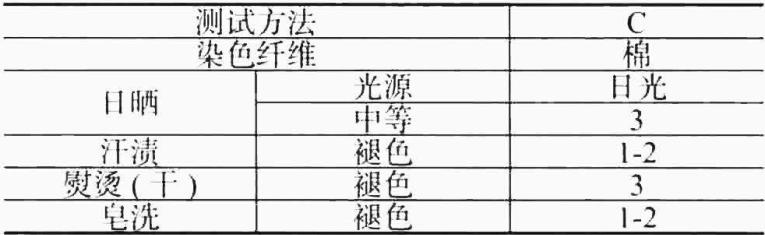 测试方法 C
染色纤维 棉
日晒 光源 日光
中等 3
汗渍 褪色 1-2
熨烫(干) 褪色 3
皂洗 褪色 1-2